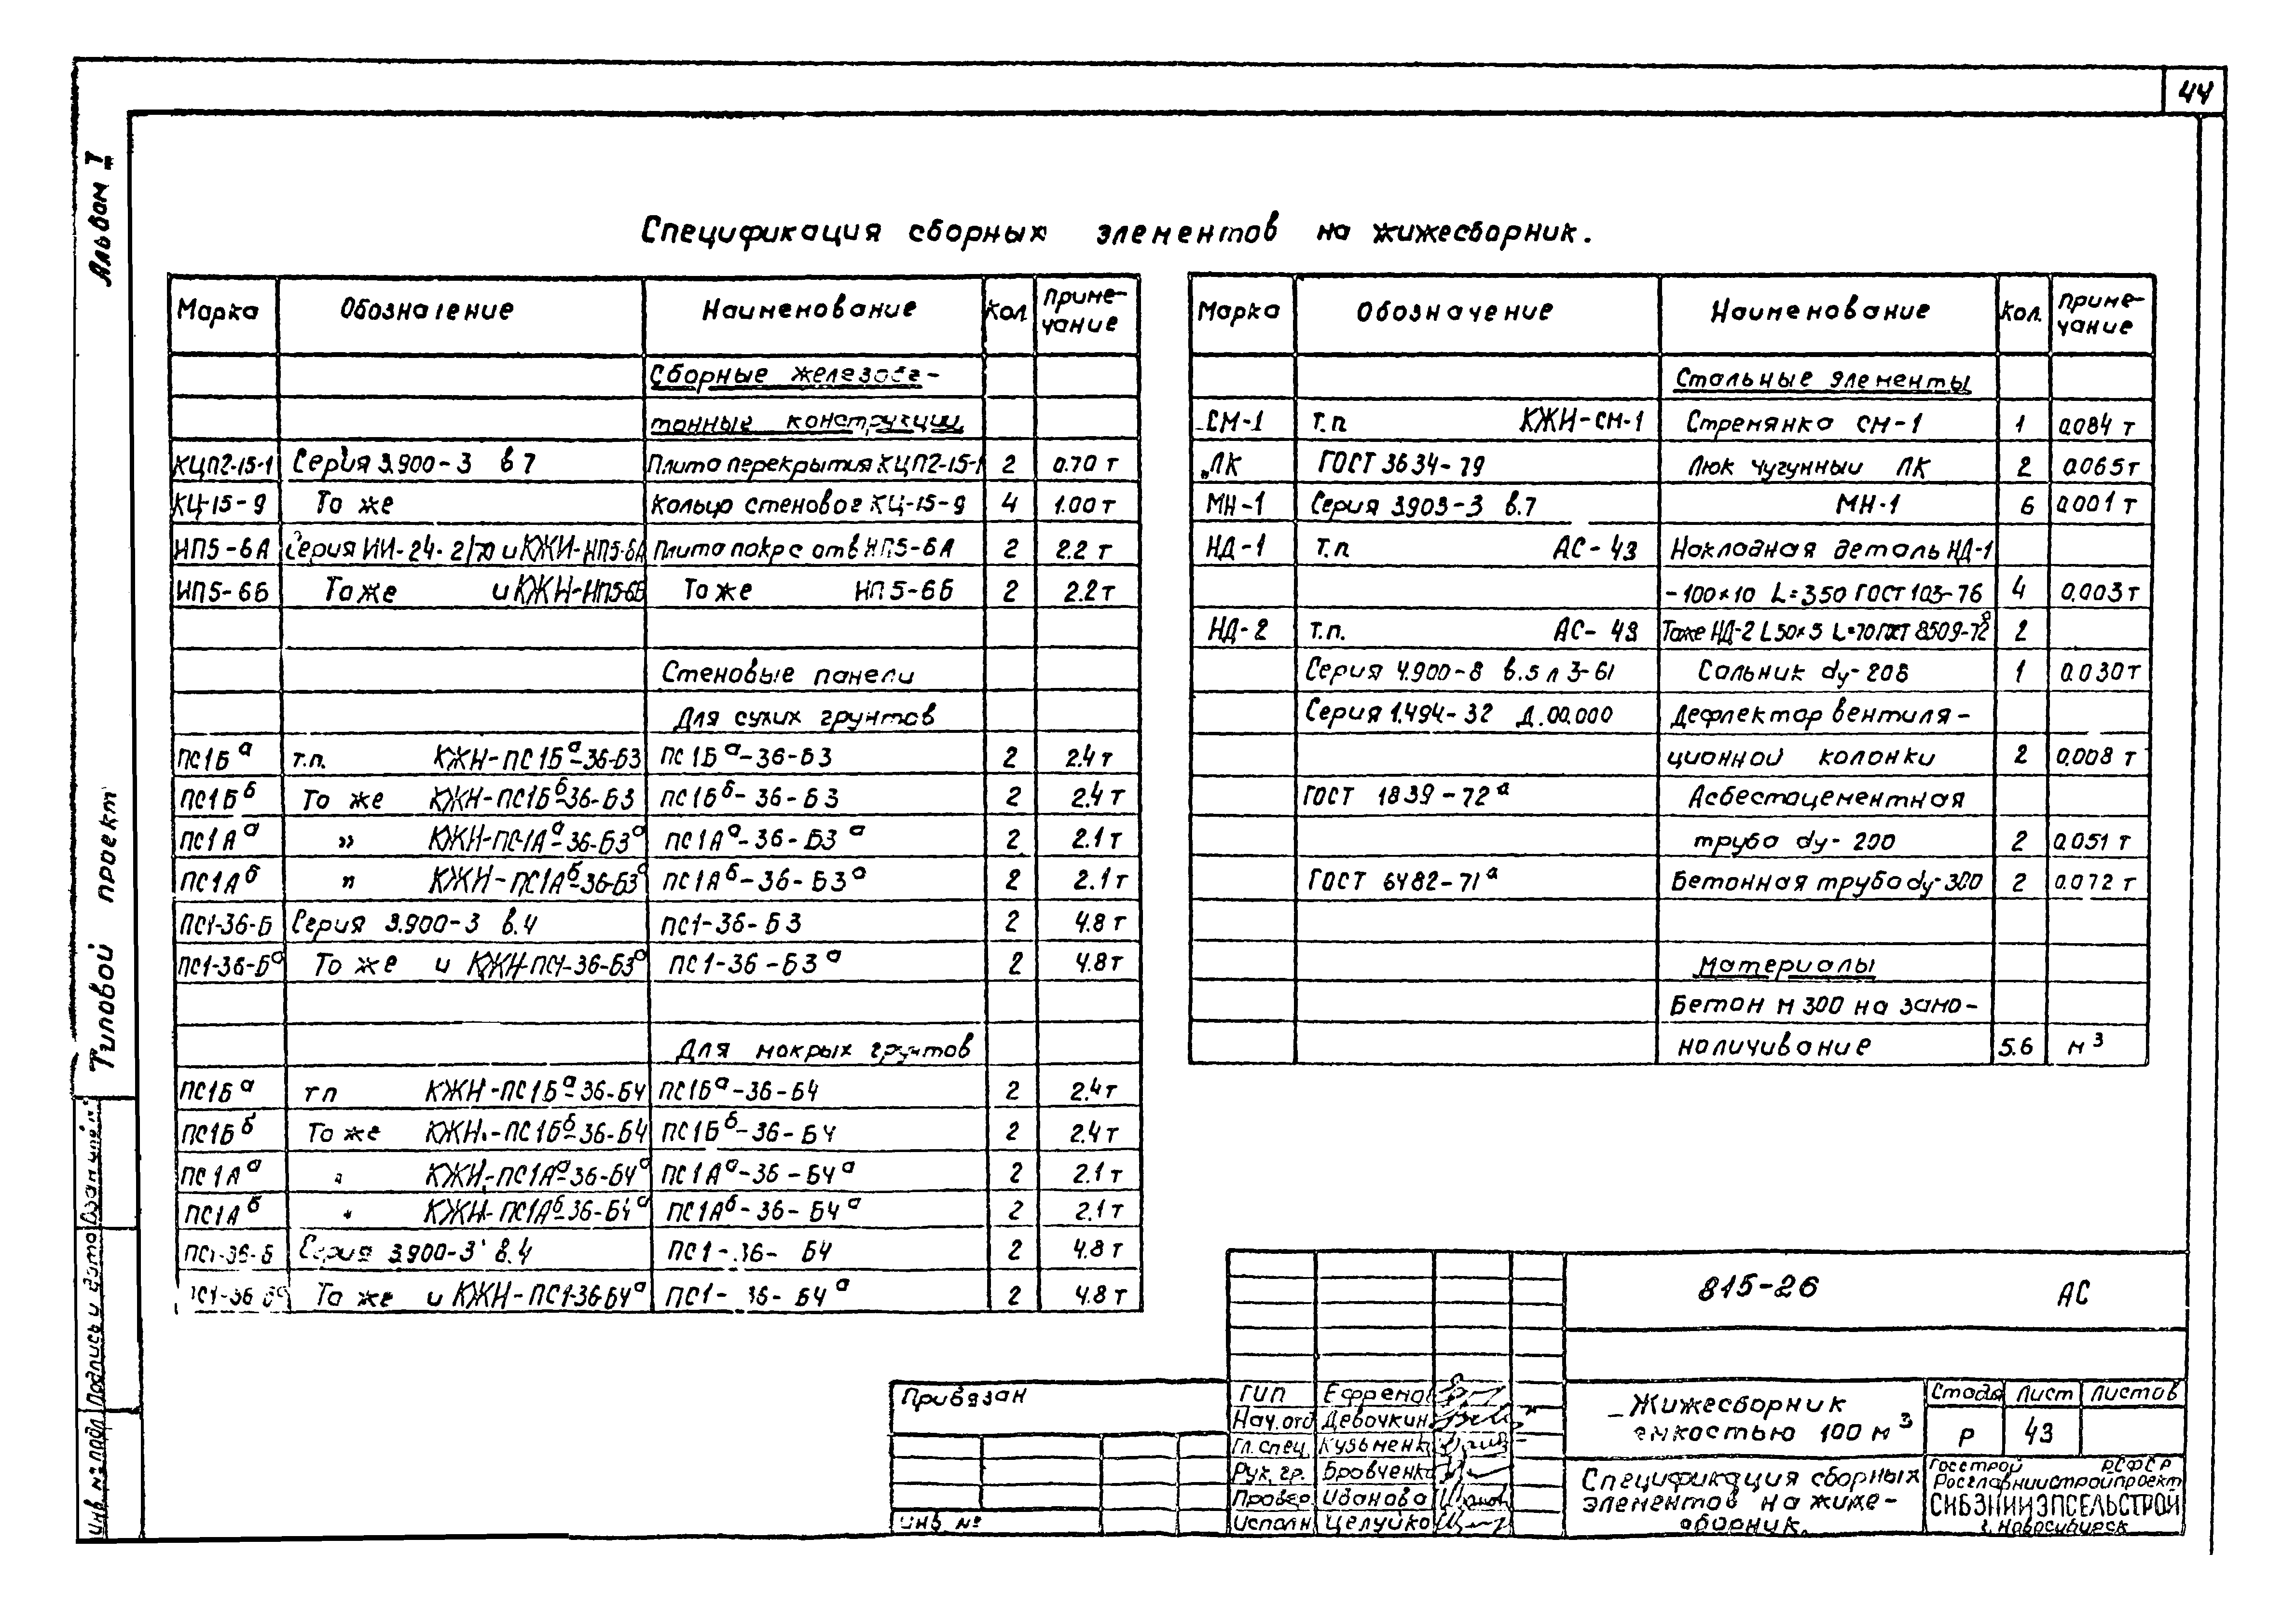 44
Альбом I
Типовой проект
Спецификация сборных элементов на жижесборник.
Марка Обозначение Наименование Кол. Примечание
Сборные железобе-
тонные конструкции
КЦП2-15-1 Серия 3.900-3 в 7 Плита перекрытия КЦП2-15-1 2 0.70 т
КЦ-15-9 То же Кольцо стеновое КЦ-15-9 4 1.00 т
НП5-6А Серия ИИ-24-2/70 и КЖИ-НП5-6А Плита покр с отв НП5-6А 2 2.2 т
НП5-6Б То же и КЖИ-НП5-6Б То же НП5-6Б 2 2.2 т
Стеновые панели
Для сухих грунтов
ПС1Бᵃ т.п. КЖИ-ПС1Бᵃ-36-Б3 ПС1Бᵃ-36-Б3 2 2.4 т
ПС1Бᵇ То же КЖИ-ПС1Бᵇ-36-Б3 ПС1Бᵇ-36-Б3 2 2.4 т
ПС1Аᵃ " КЖИ-ПС1Аᵃ-36-Б3ᵃ ПС1Аᵃ-36-Б3ᵃ 2 2.1 т
ПС1Аᵇ " КЖИ-ПС1Аᵇ-36-Б3ᵃ ПС1Аᵇ-36-Б3ᵃ 2 2.1 т
ПС1-36-Б Серия 3.900-3 в.4 ПС1-36-Б3 2 4.8 т
ПС1-36-Бᵃ То же и КЖИ-ПС1-36-Б3ᵃ ПС1-36-Б3ᵃ 2 4.8 т
Для мокрых грунтов
ПС1Бᵃ т п КЖИ-ПС1Бᵃ-36-Б4 ПС1Бᵃ-36-Б4 2 2.4 т
ПС1Бᵇ То же КЖИ-ПС1Бᵇ-36-Б4 ПС1Бᵇ-36-Б4 2 2.4 т
ПС1Аᵃ " КЖИ-ПС1Аᵃ-36-Б4ᵃ ПС1Аᵃ-36-Б4ᵃ 2 2.1 т
ПС1Аᵇ " КЖИ-ПС1Аᵇ-36-Б4ᵃ ПС1Аᵇ-36-Б4ᵃ 2 2.1 т
ПС1-36-Б Серия 3.900-3 в.4 ПС1-36-Б4 2 4.8 т
ПС1-36-Бᵃ То же и КЖИ-ПС1-36-Б4ᵃ ПС1-36-Б4ᵃ 2 4.8 т
Марка Обозначение Наименование Кол. Примечание
Стальные элементы
СМ-1 т.п КЖИ-СМ-1 Стремянка СМ-1 1 0.084 т
ЛК ГОСТ 3634-79 Люк чугунный ЛК 2 0.065 т
МН-1 Серия 3.903-3 в.7 МН-1 6 0.001 т
НД-1 т.п АС-43 Накладная деталь НД-1
-100×10 L=350 ГОСТ 103-76 4 0.003 т
НД-2 т.п. АС-43 То же НД-2 L50×5 L=70 ГОСТ 8509-72 2
Серия 4.900-8 в.5 л 3-61 Сальник dу-200 1 0.030 т
Серия 1.494-32 Д.00.000 Дефлектор вентиля-
ционной колонки 2 0.008 т
ГОСТ 1839-72ᵃ Асбестоцементная
труба dу-200 2 0.051 т
ГОСТ 6482-71ᵃ Бетонная труба dу-300 2 0.072 т
Материалы
Бетон м 300 на замо-
ноличивание 5.6 м³
Инв. № подл Подпись и дата Взам инв №
Привязан
Инв. №
ГИП Ефремов
Нач. отд Девочкин
Гл. спец. Кузьменк
Рук. гр. Бровченко
Провер. Иванова
Исполн Целуйко
815-26 АС
Жижесборник
емкостью 100 м³
Стадия Лист Листов
Р 43
Спецификация сборных
элементов на жиже-
сборник.
Госстрой РСФСР
Росглавниистройпроект
СИБЗНИИЭПСЕЛЬСТРОЙ
г. Новосибирск